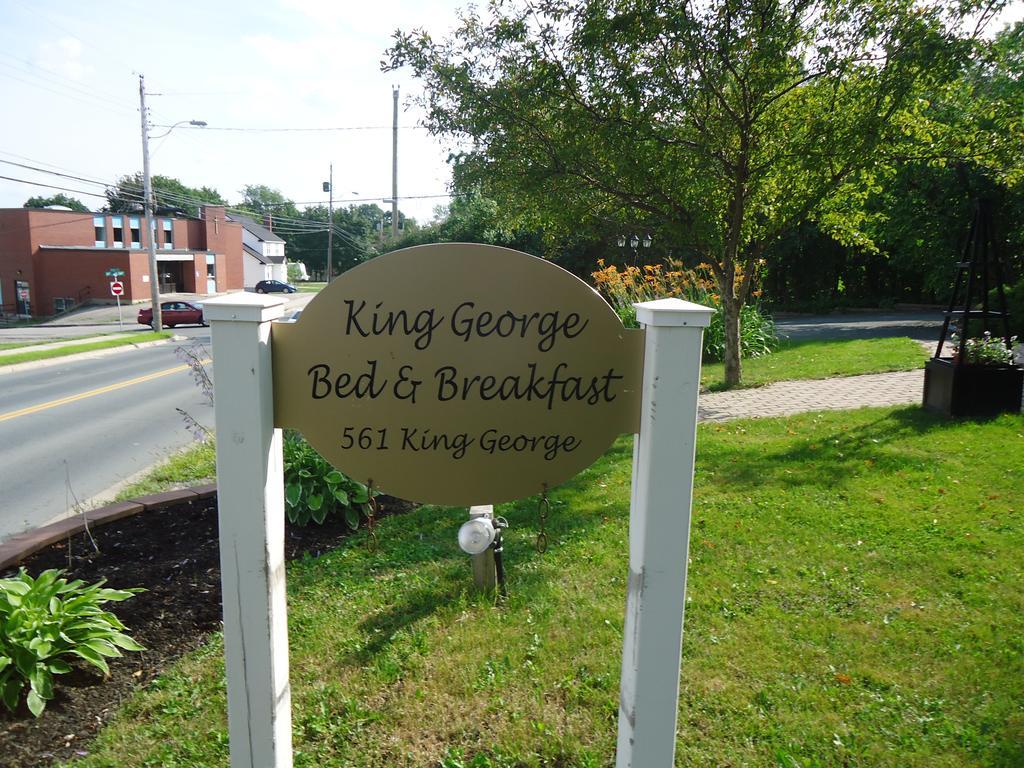 King George
Bed & Breakfast
561 King George